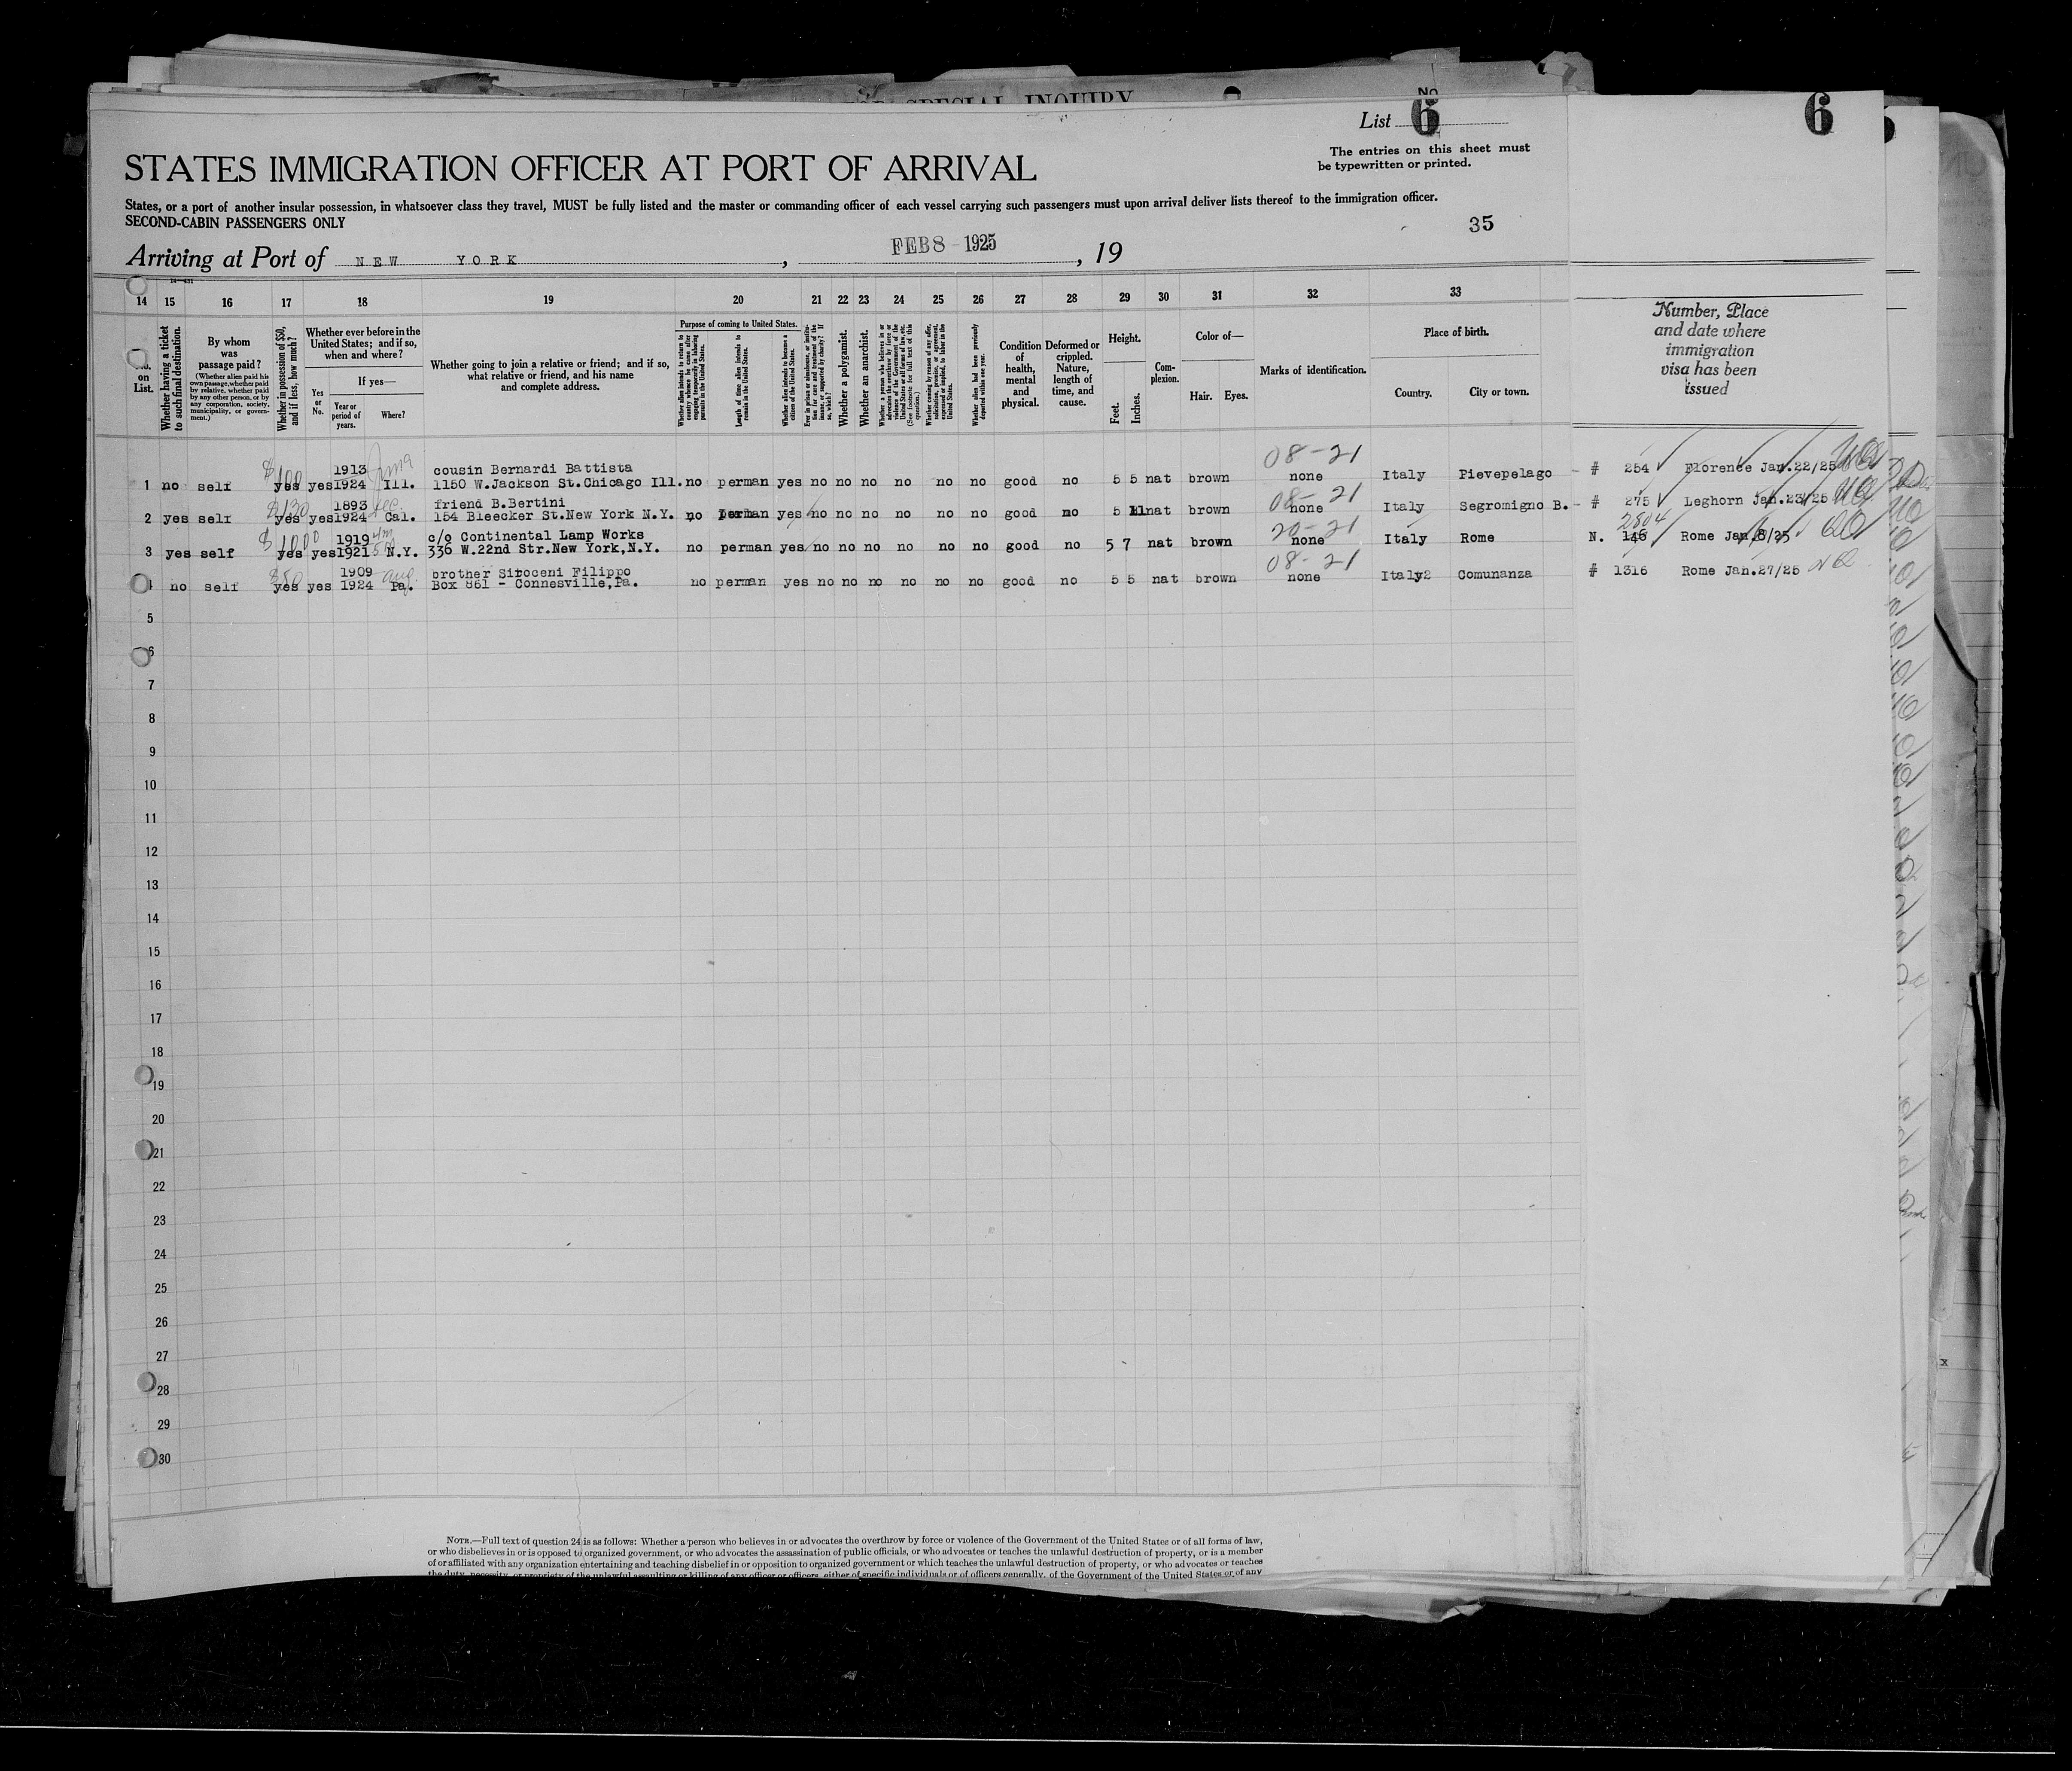 SPECIAL INQUIRY
No
List 6
6
The entries on this sheet must
be typewritten or printed.
STATES IMMIGRATION OFFICER AT PORT OF ARRIVAL
States, or a port of another insular possession, in whatsoever class they travel, MUST be fully listed and the master or commanding officer of each vessel carrying such passengers must upon arrival deliver lists thereof to the immigration officer.
SECOND-CABIN PASSENGERS ONLY
35
Arriving at Port of NEW YORK, FEB 8 - 1925, 19
14 15 16 17 18 19 20 21 22 23 24 25 26 27 28 29 30 31 32 33
No. on List.
Whether having a ticket to such final destination.
By whom was passage paid?
(Whether alien paid his own passage, whether paid by relative, whether paid by any other person, or by any corporation, society, municipality, or government.)
Whether in possession of $50, and if less, how much?
Whether ever before in the United States; and if so, when and where?
Yes or No.
If yes—
Year or period of years.
Where?
Whether going to join a relative or friend; and if so, what relative or friend, and his name and complete address.
Purpose of coming to United States.
Whether alien intends to return to country whence he came after engaging temporarily in laboring pursuits in the United States.
Length of time alien intends to remain in the United States.
Whether alien intends to become a citizen of the United States.
Ever in prison or almshouse, or institution for care and treatment of the insane, or supported by charity? If so, which?
Whether a polygamist.
Whether an anarchist.
Whether a person who believes in or advocates the overthrow by force or violence of the Government of the United States or all forms of law, etc. (See footnote for full text of this question.)
Whether coming by reason of any offer, solicitation, promise, or agreement, expressed or implied, to labor in the United States.
Whether alien had been previously deported within one year.
Condition of health, mental and physical.
Deformed or crippled. Nature, length of time, and cause.
Height.
Feet. Inches.
Complexion.
Color of—
Hair. Eyes.
Marks of identification.
Place of birth.
Country. City or town.
Number, Place
and date where
immigration
visa has been
issued
1 no self $100 yes yes 1913 1924 Ill. cousin Bernardi Battista 1150 W.Jackson St.Chicago Ill. no perman yes no no no no no no good no 5 5 nat brown 08-21 none Italy Pievepelago - # 254 Florence Jan.22/25
2 yes self $130 yes yes 1893 1924 Cal. friend B.Bertini 154 Bleecker St.New York N.Y. no perman yes no no no no no no good no 5 11 nat brown 08-21 none Italy Segromigno B. - # 275 Leghorn Jan.23/25
3 yes self $1000 yes yes 1919 1921 N.Y. c/o Continental Lamp Works 336 W.22nd Str.New York,N.Y. no perman yes no no no no no no good no 5 7 nat brown 20-21 none Italy Rome N. 2804 146 Rome Jan.8/25
4 no self $50 yes yes 1909 1924 Aug. Pa. brother Sitoceni Filippo Box 861 - Connesville,Pa. no perman yes no no no no no no good no 5 5 nat brown 08-21 none Italy2 Comunanza # 1316 Rome Jan.27/25
5
6
7
8
9
10
11
12
13
14
15
16
17
18
19
20
21
22
23
24
25
26
27
28
29
30
NOTE.—Full text of question 24 is as follows: Whether a person who believes in or advocates the overthrow by force or violence of the Government of the United States or of all forms of law,
or who disbelieves in or is opposed to organized government, or who advocates the assassination of public officials, or who advocates or teaches the unlawful destruction of property, or is a member
of or affiliated with any organization entertaining and teaching disbelief in or opposition to organized government or which teaches the unlawful destruction of property, or who advocates or teaches
the duty, necessity, or propriety of the unlawful assaulting or killing of any officer or officers, either of specific individuals or of officers generally, of the Government of the United States or of any